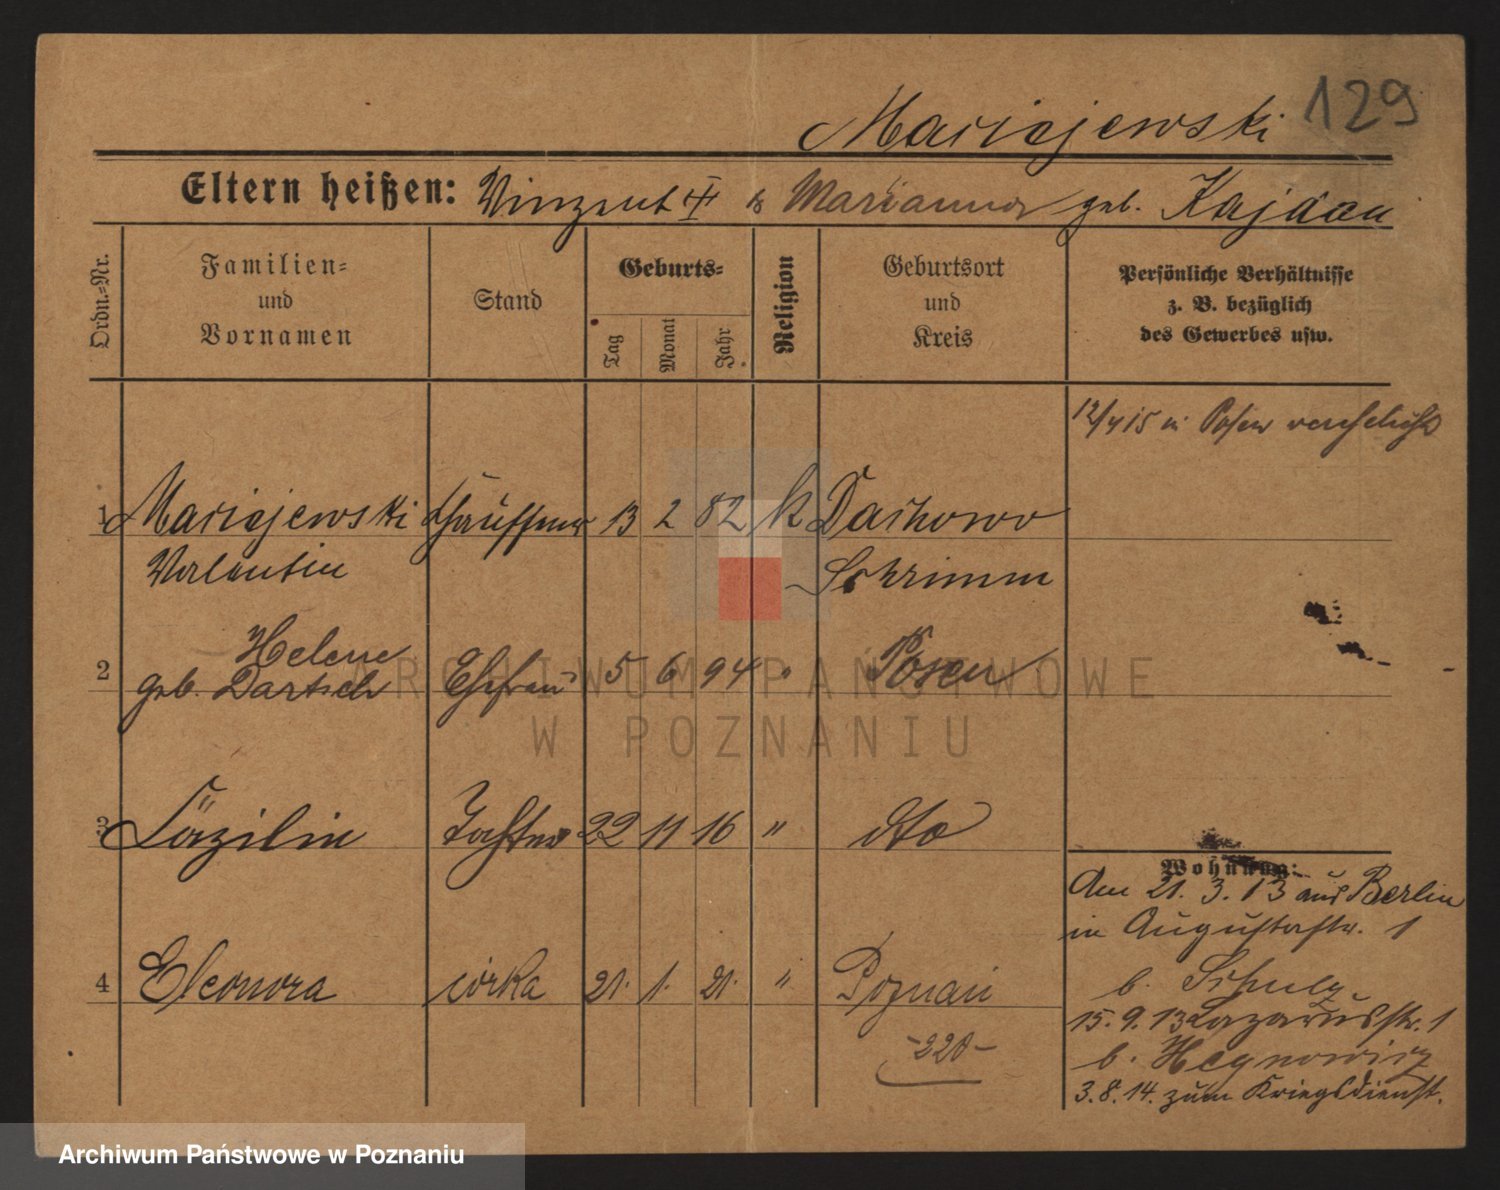 129
Maciejewski
Eltern heißen: Vinzent † & Marianna geb. Kajdan
Ordn.-Nr.
Familien-
und
Vornamen
Stand
Geburts-
Tag
Monat
Jahr
Religion
Geburtsort
und
Kreis
Persönliche Verhältnisse
z. B. bezüglich
des Gewerbes usw.
12/4 15 in Posen verehelicht
1 Maciejewski Chauffeur 13 2 82 k Dachowo
Valentin Schrimm
Helene
2 geb. Bartsch Ehefrau 5 6 94 " Posen
3 Cäzilie Tochter 22 11 16 " dto
4 Eleonora córka 21. 1. 21. " Poznań
-220-
Wohnung:
Am 21. 3. 13 aus Berlin
in Augustastr. 1
b. Schulz
15. 9. 13 Lazarusstr. 1
b.
3. 8. 14. zum Kriegsdienst.
ARCHIWUM PAŃSTWOWE
W POZNANIU
Archiwum Państwowe w Poznaniu